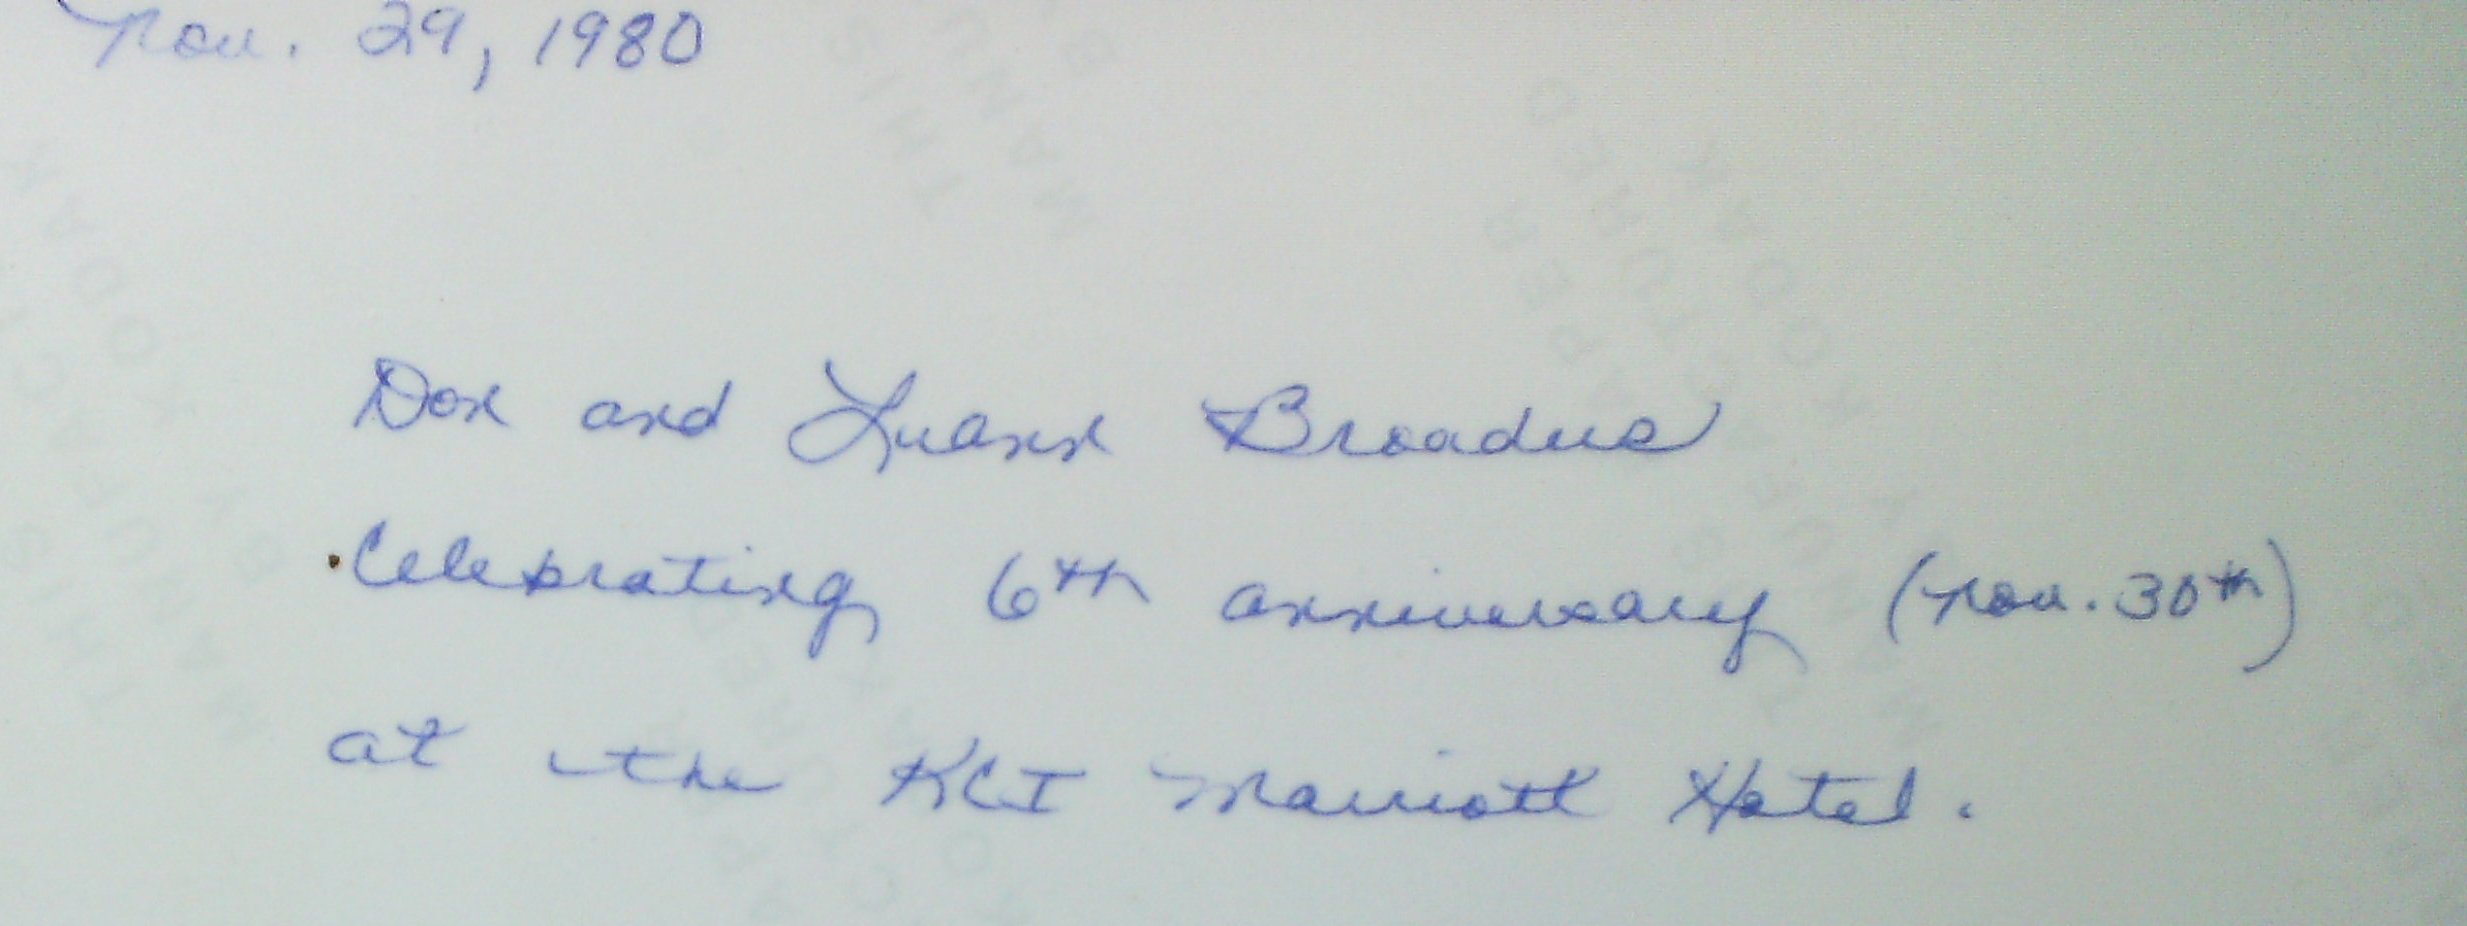 Nov. 29, 1980
Don and Luann Broadus
Celebrating 6th anniversary (Nov. 30th)
at the KCI Marriott Hotel.